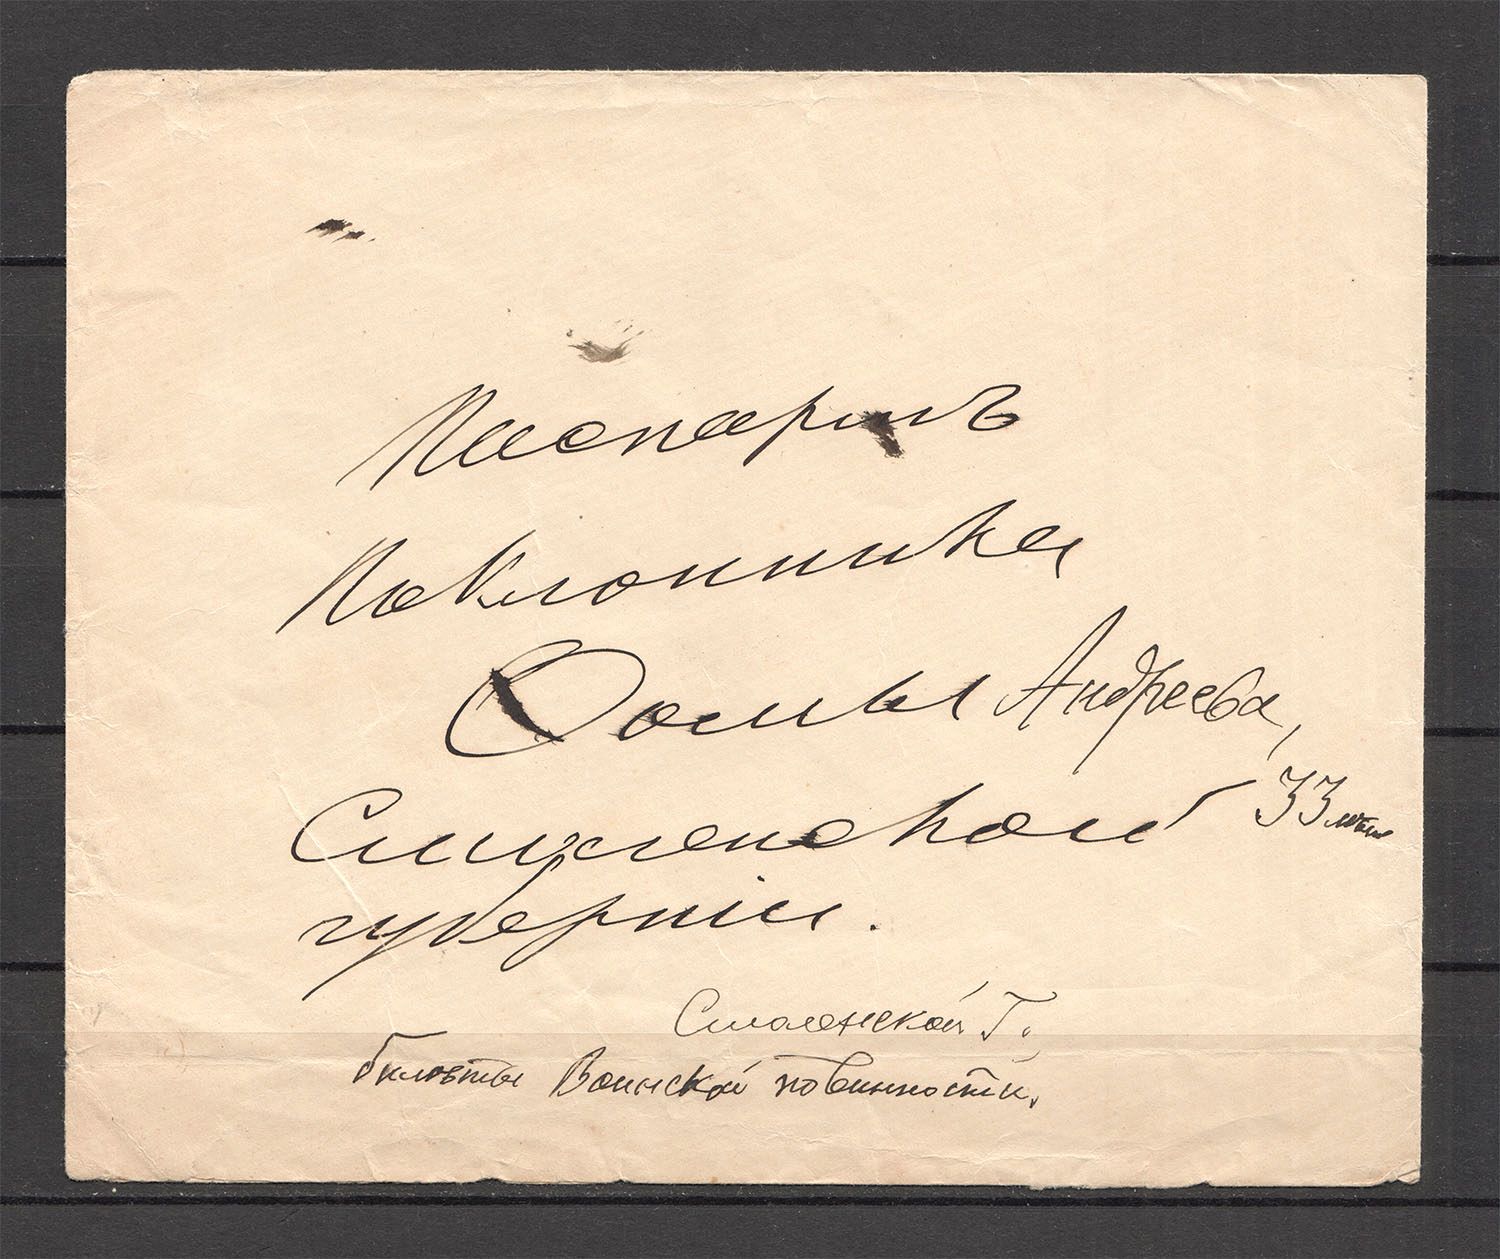 Паспартъ
Поклонника
Фомы Андреева,
Смоленской 33 лѣтъ
губерніи.
Смоленской Г.
билеты Воинской повинности.